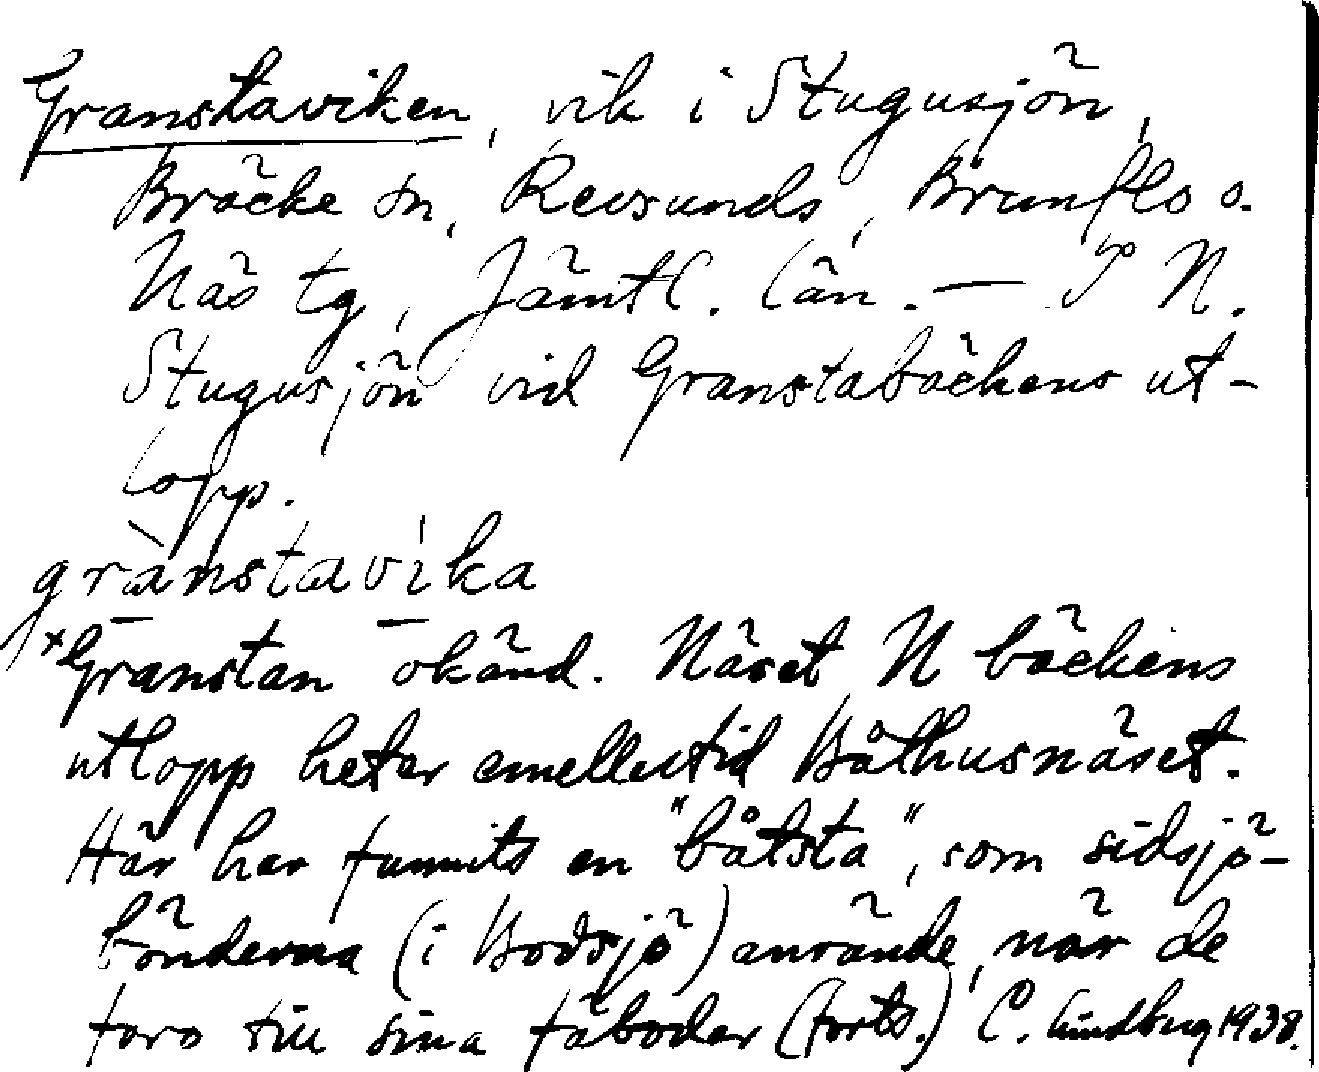 Granstaviken, vik i Stugusjön,
Bräcke sn, Revsunds, Brunflo o.
Näs tg, Jämtl. län. — I N.
Stugusjön vid Granstabäckens ut-
lopp.
grànstavika
*Granstan okänd. Näset N bäckens
utlopp heter emellertid Båthusnäset.
Här har funnits en "båtsta", som sidsjö-
bönderna (i Bodsjö) använde, när de
foro till sina fäbodar (forts.) C. Lindberg 1938.